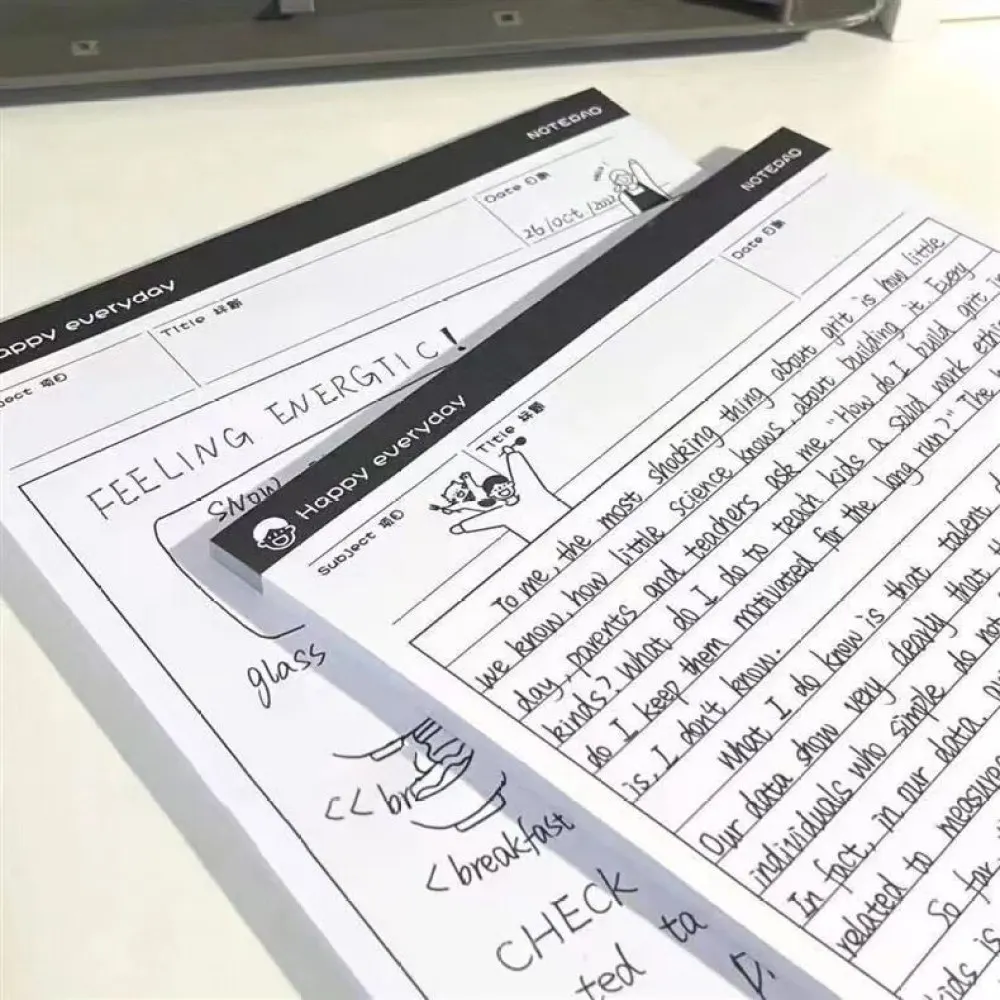 Happy everyday
NOTEDAO
Title 标题
Date 日期
26/Oct/2022
FEELING ENERGTIC!
SNOW
glass
<< br
< breakfast
CHECK
ted ta
Happy everyday
NOTEDAO
Subject 项目
Title 标题
Date 日期
To me, the most shocking thing about grit is how little
we know, how little science knows, about building it. Every
day, parents and teachers ask me, "How do I build grit in
kinds? What do I do to teach kids a solid work
do I keep them motivated for the long run?" The
is, I don't know.
What I do know is that talent
Our data show very clearly that
individuals who simple do not
In fact, in our data,
related to
So far,
is